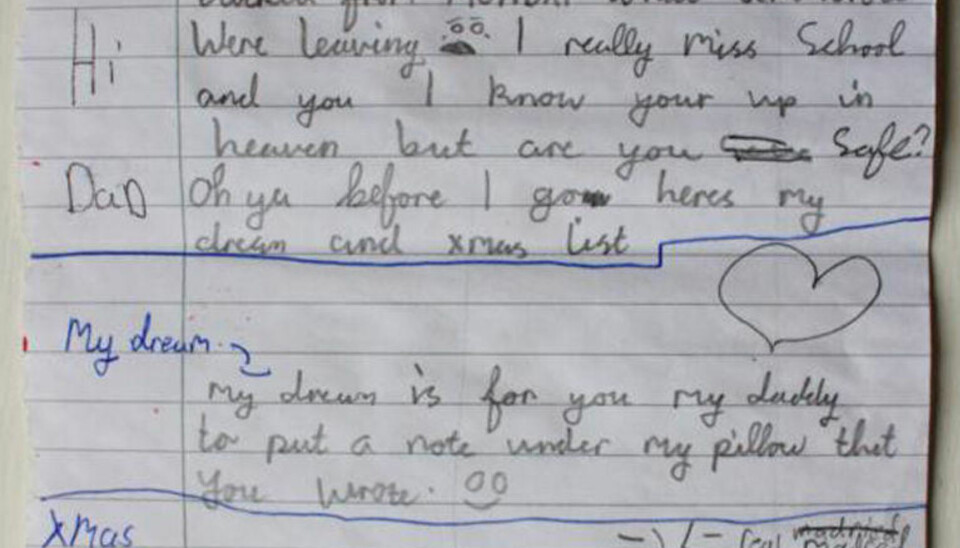 Hi Were leaving I really miss School
and you I know your up in
heaven but are you Safe?
Dad Oh ya before I go heres my
dream and xmas list
My dream
my dream is for you my daddy
to put a note under my pillow that
You wrote.
xmas